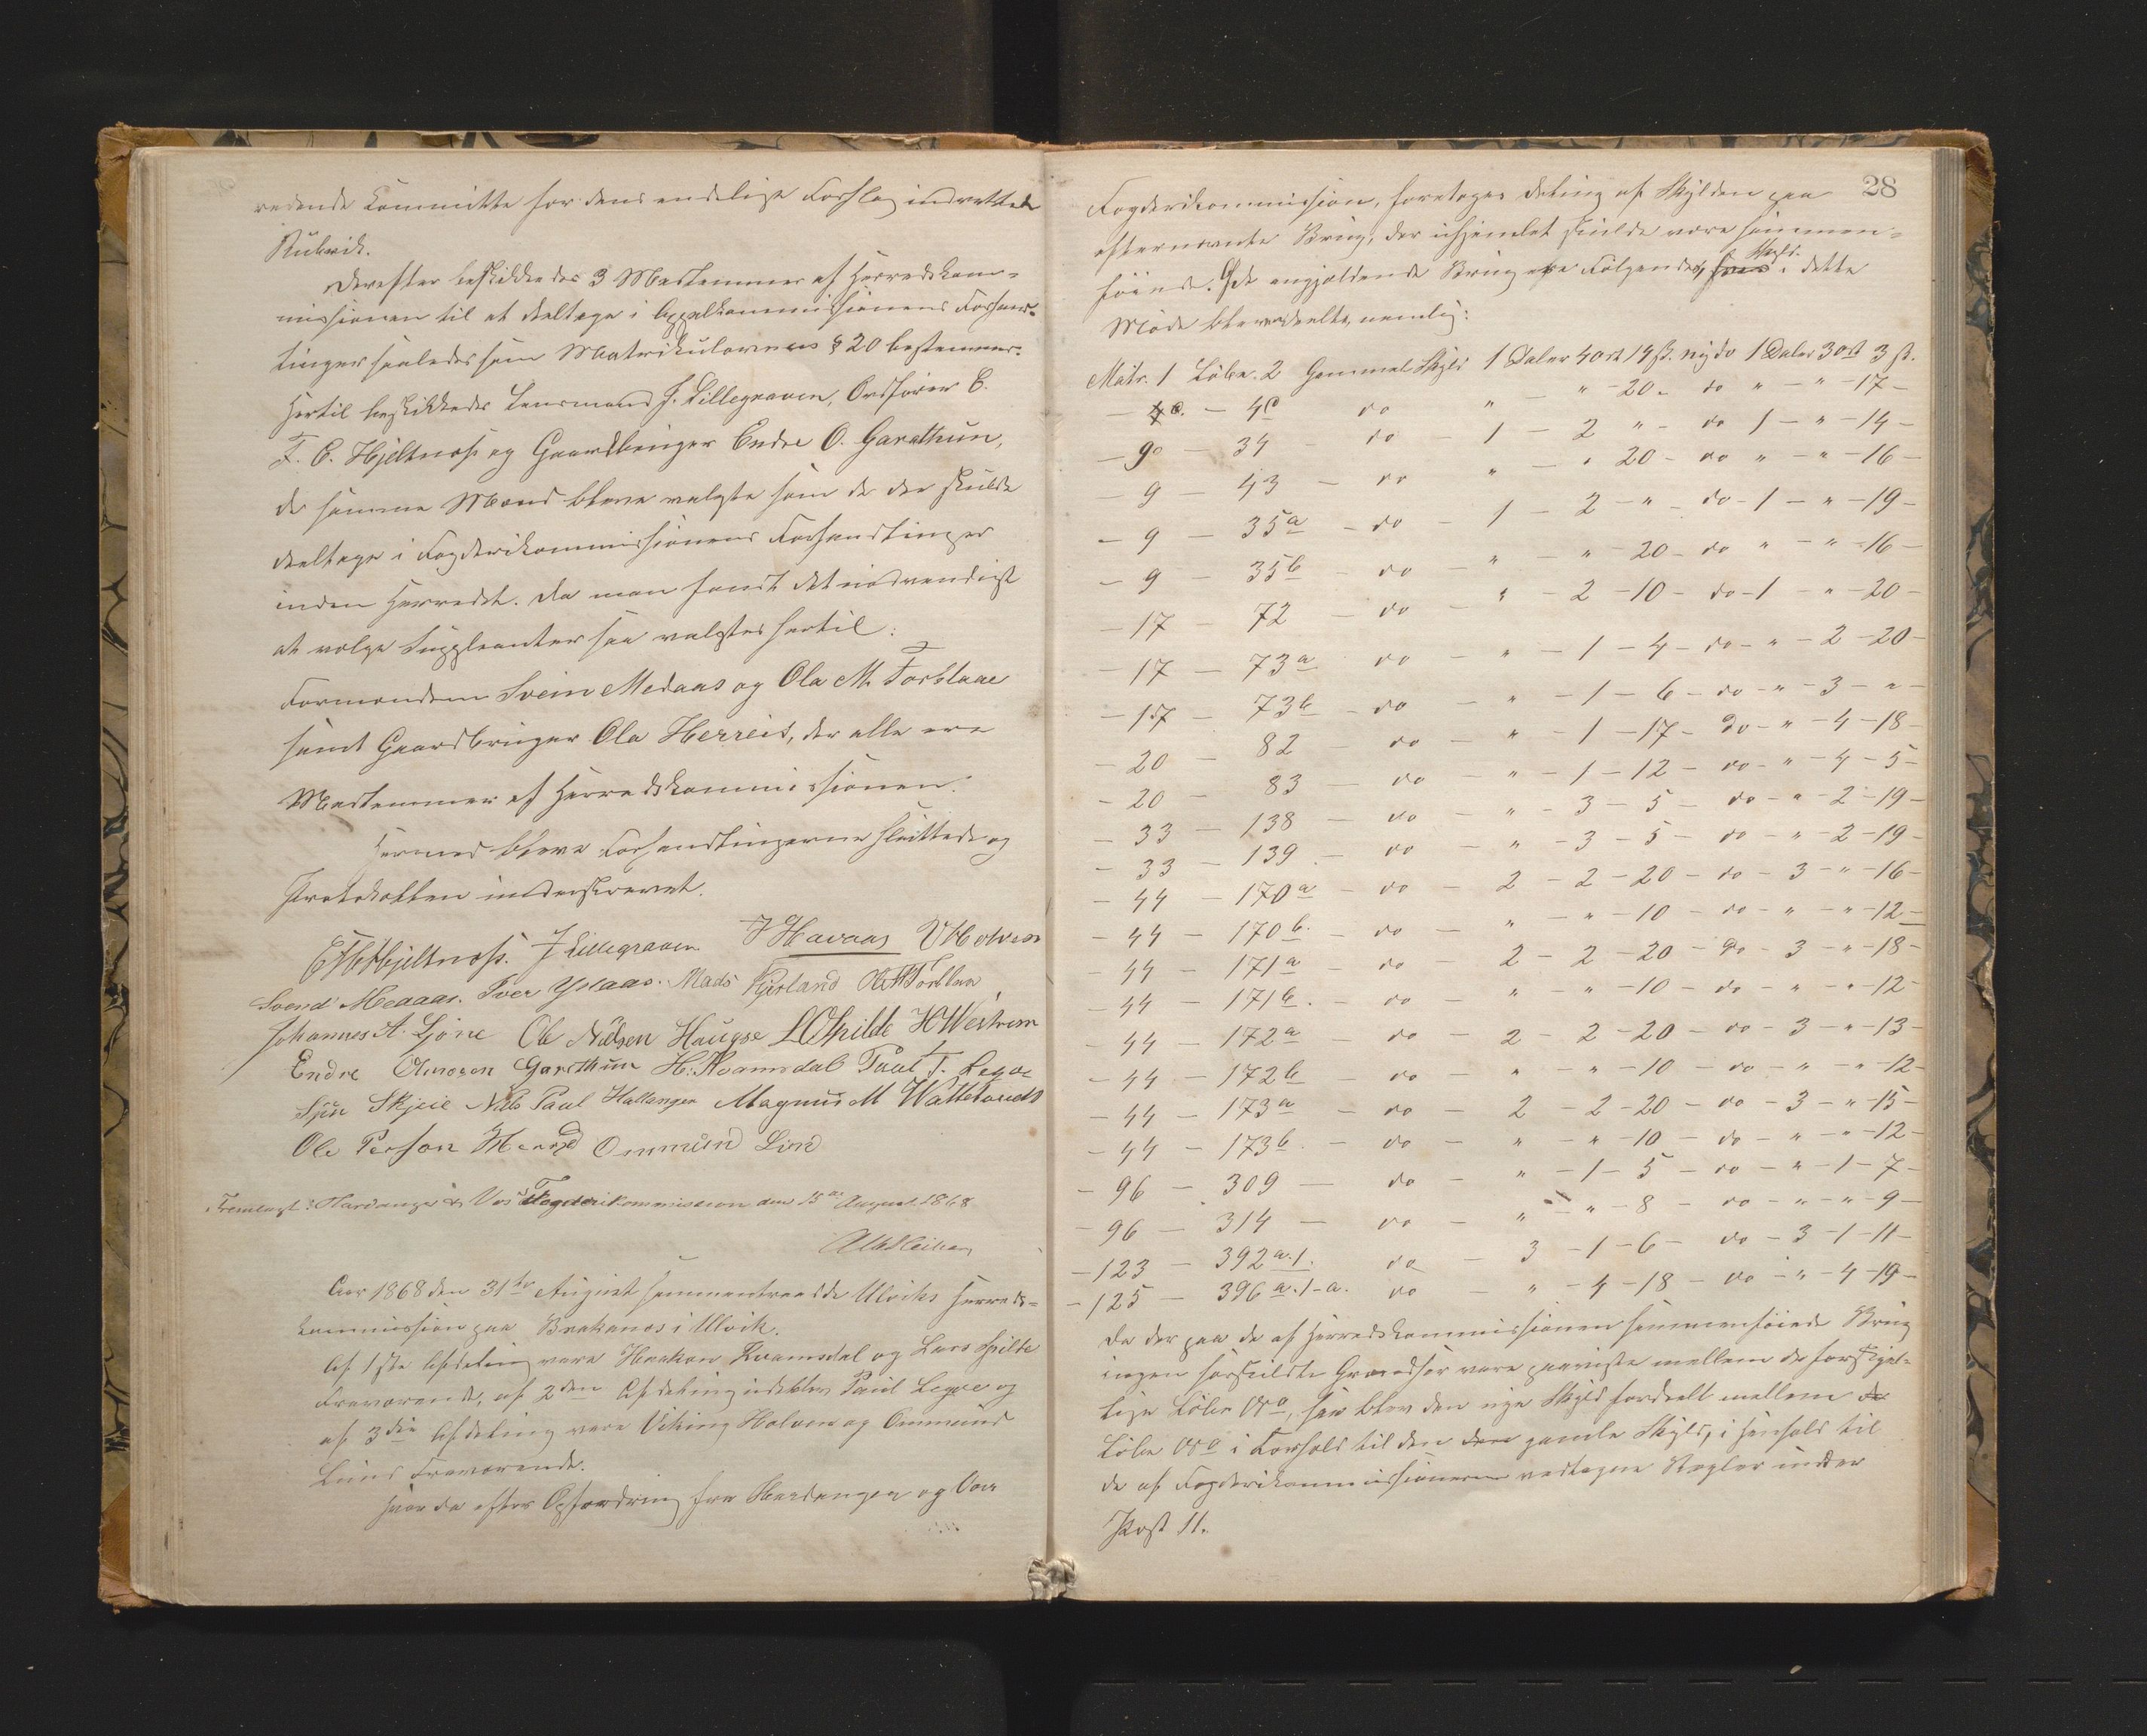 redende Committe for dens endelige Forslag indrettede
Rubrik.
Derefter beskikkedes 3 Medlemmer af Herredskom-
missionen til at deeltage i Appelkommissionens Forhand-
linger saaledes som Matrikulovens § 20 bestemmer.
Hertil beskikkedes Lensmand J. Lillegraven, Ordfører E.
F. C. Hjeltnæs og Gaardbruger Endre O. Garathun,
de samme Mænd bleve valgte som de der skulde
deeltage i Fogderikommissionens Forhandlinger
inden Herredet. Da man fandt det nødvendigt
at vælge Suppleanter saa valgtes hertil:
Formændene Svein Medaas og Ola M. Torblaae
samt Gaardbruger Ola Herreid, der alle ere
Medlemmer af Herredskommissionen.
Hermed bleve Forhandlingerne sluttede og
Protokollen underskrevet.
Hjeltnæs. J Lillegraven J Havaas V Holven
Svend Medaas. Iver Ydaas. Mads Kjerland O M Torblaa
Johannes A. Ljøne Ole Nilsen Haugse L O Spilde H Westrem
Endre Amosen Garsthun H. Kvamsdal Paul T. Legre
Sjur Skjeie Nils Paul Hallanger Magnus M Wattetveds
Ole Person Herred Ommund Lind
Fremlagt i Hardanger & Vos's Fogderikommission den 15de August 1868
Aar 1868 den 31te August sammentraadde Ulviks Herreds-
kommission paa Brakanæs i Ulvik.
Af 1ste Afdeling vare Haakon Kvamsdal og Lars Spilde
Fraværende, af 2den Afdeling udeblev Paul Legre og
af 3die Afdeling vare Viking Holven og Ommund
Lund Fraværende.
Hvorda efter Opfordring fra Hardanger og Voss
28
Fogderikommission, foretoges deling af Skylden paa
efternævnte Brug, der uhjemlet skulde være sammen-
føiede. De angjældende Brug ere Følgende, hvis Skyld i dette
Møde blev udeelte, nemlig:
Matr. 1 Løbe. 2 Gammel Skyld 1 Daler 4 ort 14 ß. ny do 1 Daler 3 ort 3 ß.
- 4c do " - " - 20 - do " - " - 17 -
- 9 - 34 - do - 1 - 2 " - do 1 - " - 14 -
- 9 43 - do " - " 20 - do " - " - 16 -
- 9 - 35a - do - 1 - 2 - " - do - 1 - " - 19 -
- 9 - 35b - do - " - " 20 - do " - " - 16 -
- 17 - 72 - do - " - 2 - 10 - do - 1 - " - 20 -
- 17 - 73a do - " - 1 - 4 - do - " - 2 - 20 -
- 17 - 73b - do - " - 1 - 6 - do - " - 3 - " -
- 20 - 82 - do - " - 1 - 17 - do - " - 4 - 18 -
- 20 - 83 - do - " - 1 - 12 - do - " - 4 - 5 -
- 33 - 138 - do - " - 3 - 5 - do - " - 2 - 19 -
- 33 - 139 - do - " - 3 - 5 - do - " - 2 - 19 -
- 44 - 170a - do - 2 - 2 - 20 - do - 3 - " - 16 -
- 44 - 170b. - do - " - " - 10 - do - " - " - 12 -
- 44 - 171a - do - 2 - 2 - 20 - do - 3 - " - 18 -
- 44 - 171b. - do - " - " - 10 - do - " - " - 12 -
- 44 - 172a - do - 2 - 2 - 20 - do - 3 - " - 13 -
- 44 - 172b - do - " - " - 10 - do - " - " - 12 -
- 44 - 173a - do - 2 - 2 - 20 - do - 3 - " - 15 -
- 44 - 173b - do - " - " - 10 - do - " - " - 12 -
- 96 - 309 - do - " - 1 - 5 - do - " - 1 - 7 -
- 96 - 314 - do - " - " - 8 - do - " - " - 9 -
- 123 - 392a.1. do - 3 - 1 - 6 - do - 3 - 1 - 11 -
- 125 - 396a.1-a. do - " - 4 - 18 - do - " - 4 - 19 -
Da der paa de af Herredskommissionen sammenføiede Brug
ingen særskildte Grændser vare paaviste mellem de forskjel-
lige Løbe No, saa blev den nye Skyld fordeelt mellem de
Løbe No i Forhold til den den gamle Skyld, i Henhold til
de af Fogderikommissionerne vedtagne Regler under
Post 11.